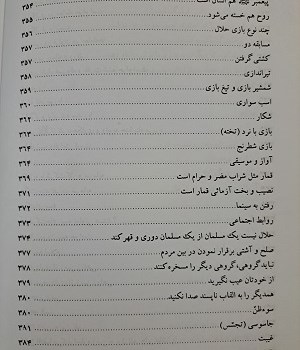 پیغمبر ﷺ هم انسان است ... ۳۵۴
روح هم خسته می‌شود ... ۳۵۵
چند نوع بازی حلال ... ۳۵۶
مسابقه دو ... ۳۵۷
کشتی گرفتن ... ۳۵۷
تیراندازی ... ۳۵۸
شمشیر بازی و تیغ بازی ... ۳۵۹
اسب سواری ... ۳۶۰
شکار ... ۳۶۲
بازی با نرد (تخته) ... ۳۶۳
بازی شطرنج ... ۳۶۴
آواز و موسیقی ... ۳۶۴
قمار مثل شراب مضر و حرام است ... ۳۶۹
نصیب و بخت آزمائی قمار است ... ۳۷۱
رفتن به سینما ... ۳۷۲
روابط اجتماعی ... ۳۷۳
حلال نیست یک مسلمان از یک مسلمان دوری و قهر کند ... ۳۷۴
صلح و آشتی برقرار نمودن در بین مردم ... ۳۷۷
نباید گروهی، گروهی دیگر را مسخره کنند ... ۳۷۸
از خودتان عیب نگیرید ... ۳۷۹
همدیگر را به القاب ناپسند صدا نکنید ... ۳۸۰
سوءظنّ ... ۳۸۰
جاسوسی (تجسّس) ... ۳۸۱
غیبت ... ۳۸۴